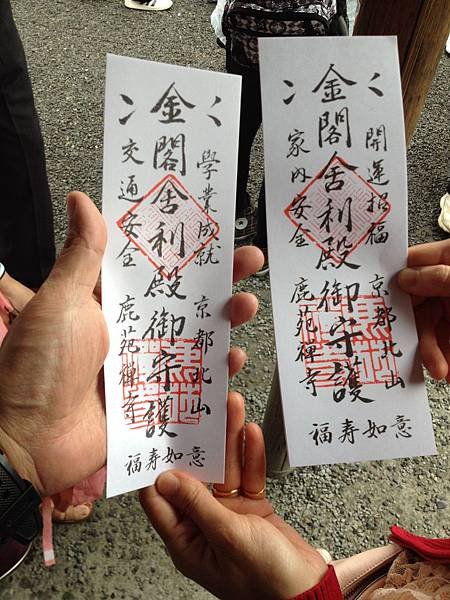 金閣舍利殿御守護
學業成就
京都北山
交通安全
鹿苑禅寺
福寿如意
金閣舍利殿御守護
開運招福
京都北山
家内安全
鹿苑禅寺
福寿如意